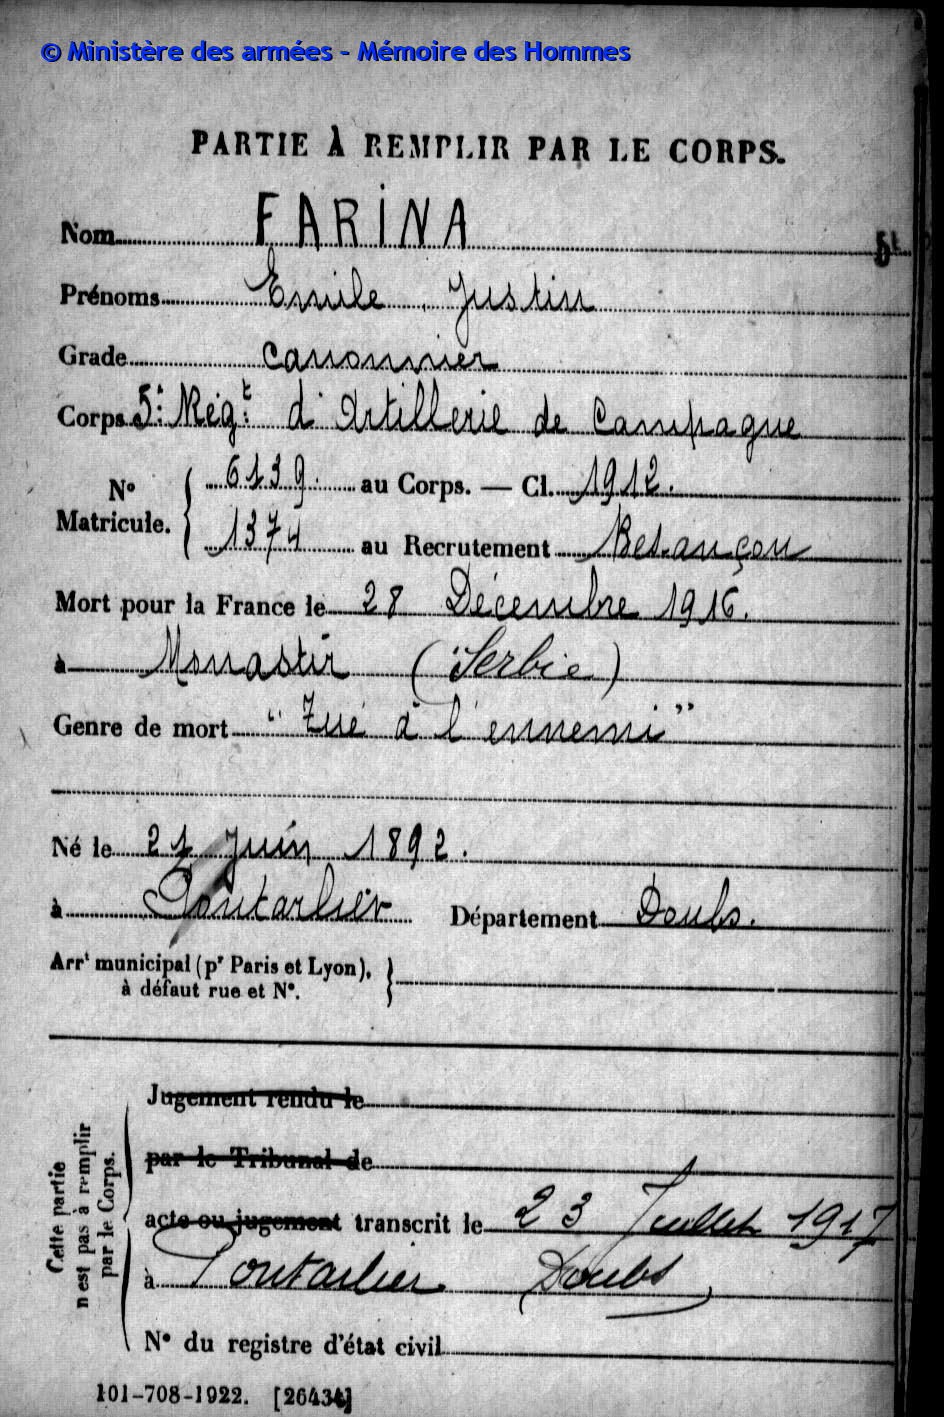 © Ministère des armées - Mémoire des Hommes
PARTIE À REMPLIR PAR LE CORPS.
Nom FARINA
Prénoms Emile Justin
Grade Canonnier
Corps 5e Régt d'Artillerie de Campagne
No Matricule. { 6139. au Corps. — Cl. 1912.
1374 au Recrutement Besançon
Mort pour la France le 28 Décembre 1916.
à Monastir (Serbie)
Genre de mort "Tué à l'ennemi"
Né le 21 Juin 1892.
à Pontarlier Département Doubs.
Arrt municipal (pr Paris et Lyon), }
à défaut rue et No.
Cette partie n'est pas à remplir par le Corps.
Jugement rendu le
par le Tribunal de
acte ou jugement transcrit le 23 Juillet 1917
à Pontarlier Doubs
No du registre d'état civil
101-708-1922. [26434]